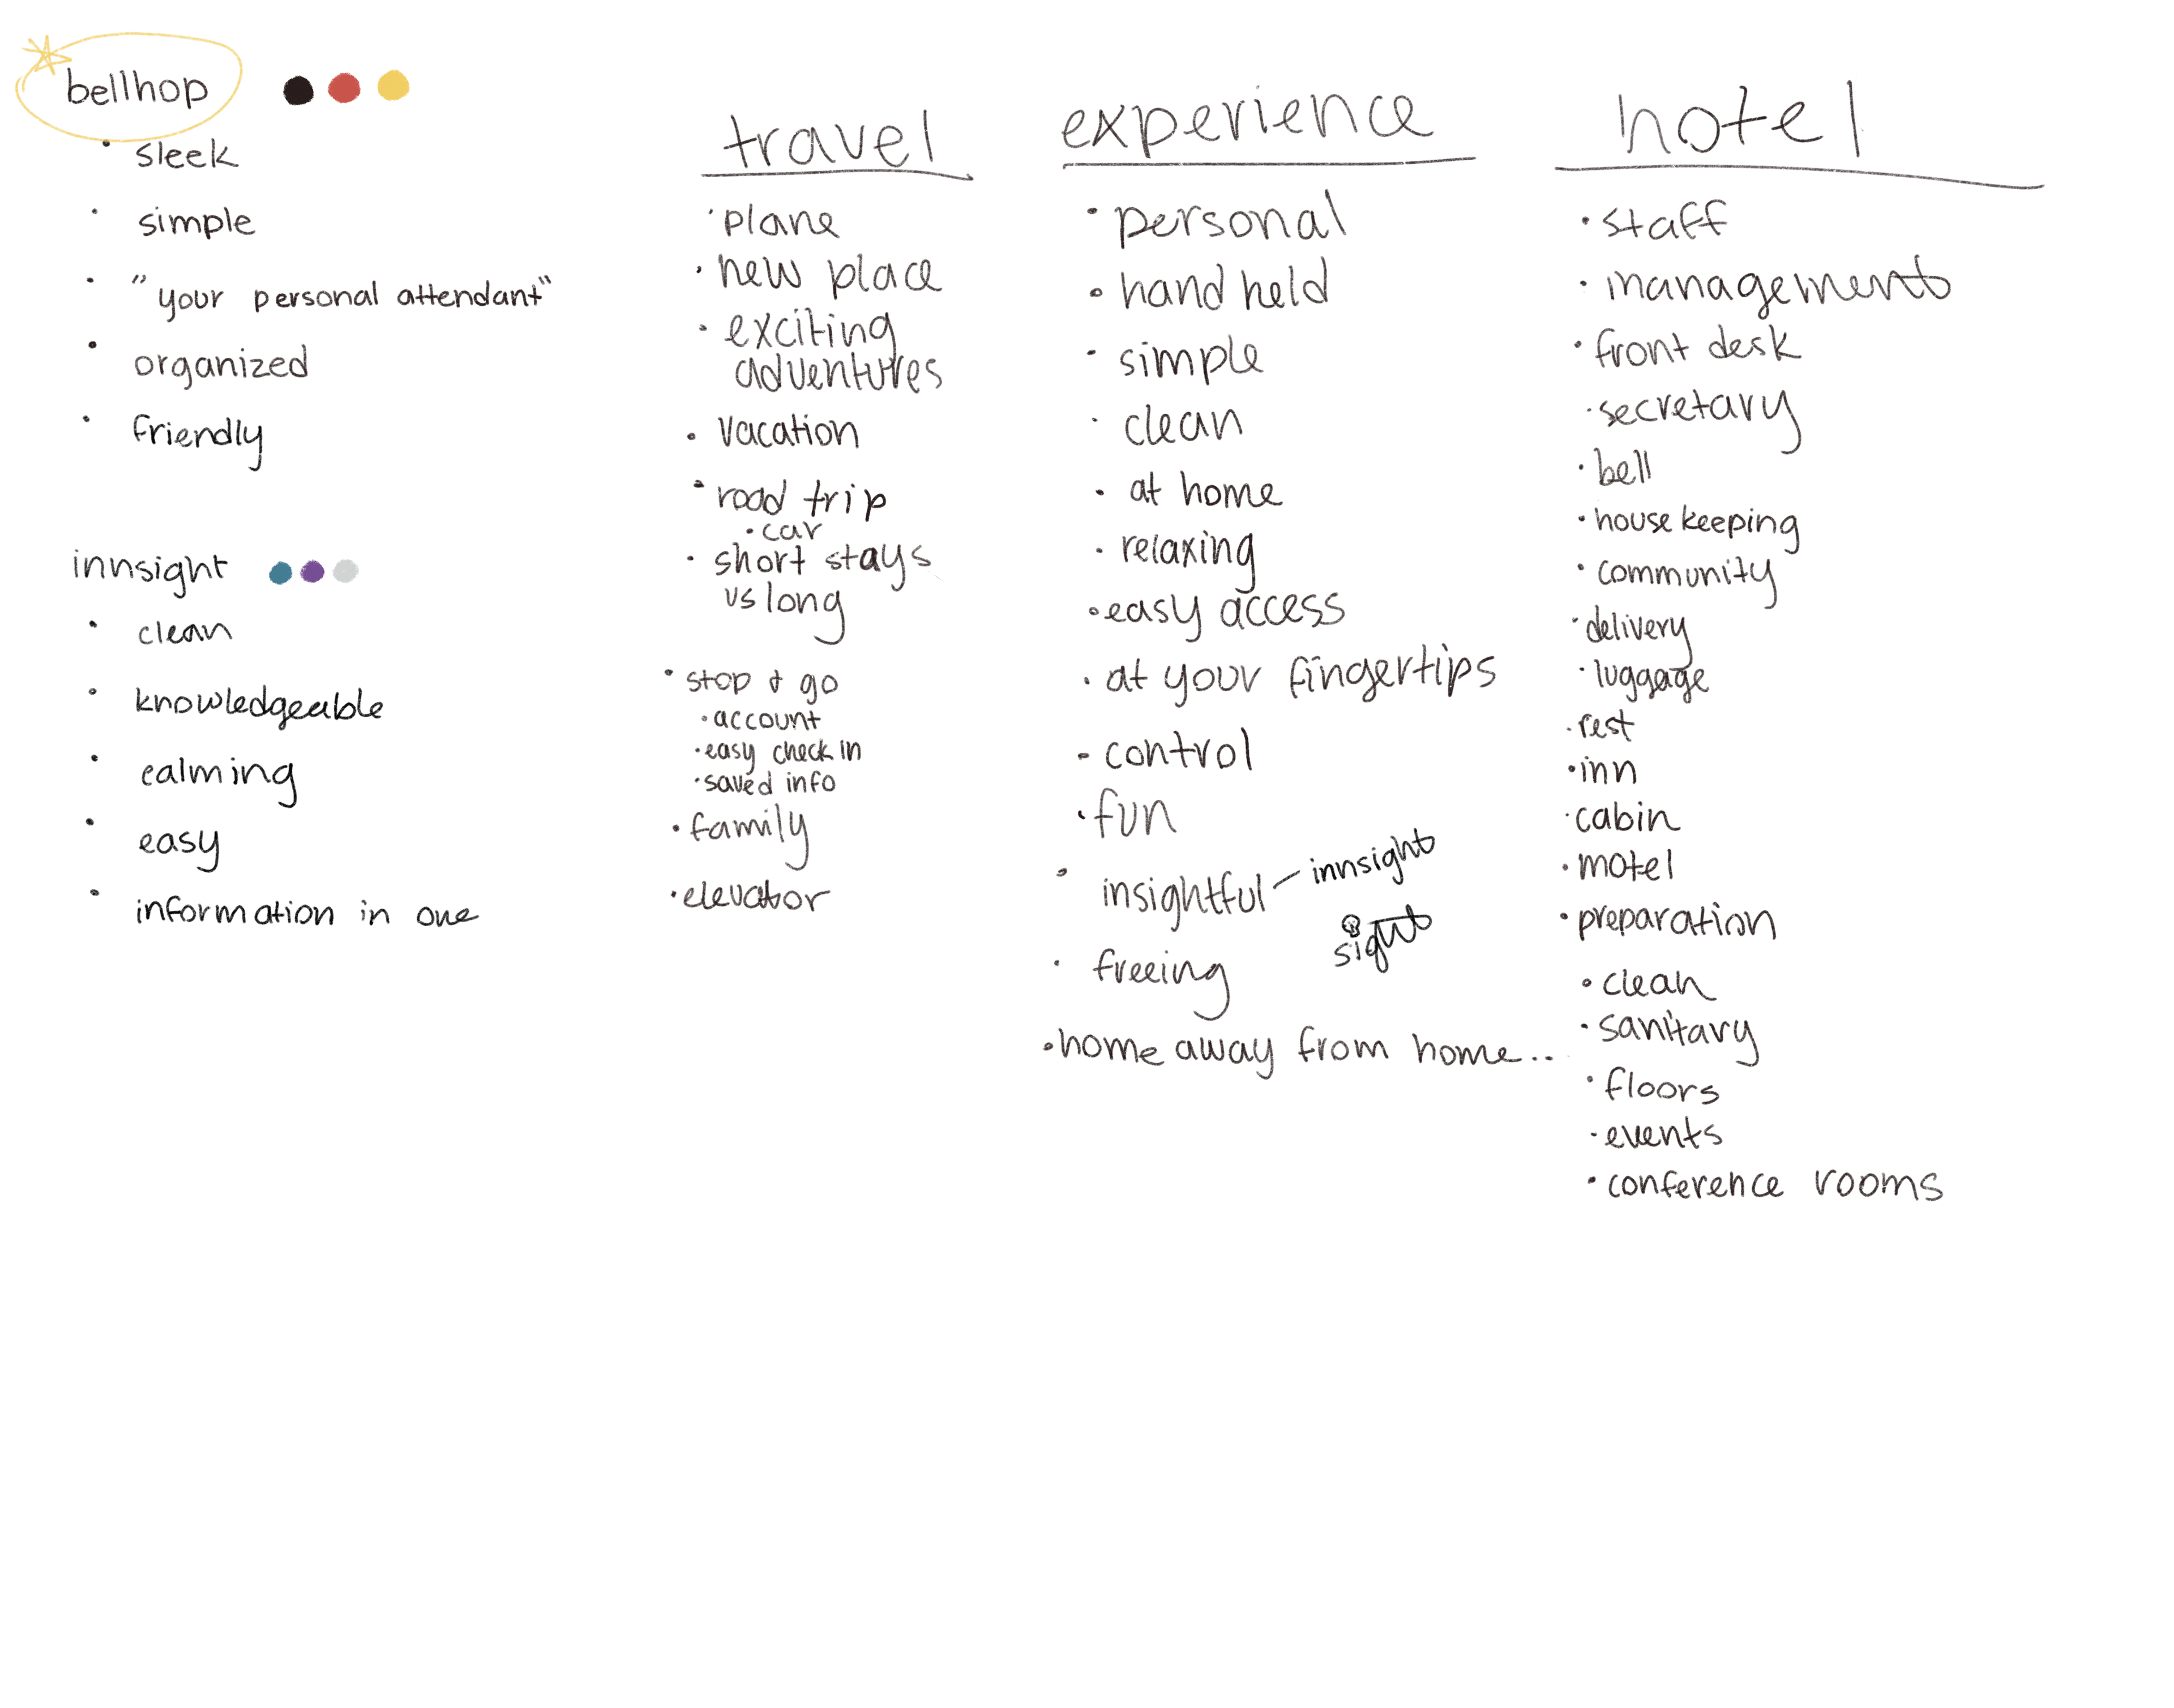 bellhop
· sleek
· simple
· "your personal attendant"
· organized
· friendly
innsight
· clean
· knowledgeable
· calming
· easy
· information in one
travel
· plane
· new place
· exciting
adventures
· vacation
· road trip
· car
· short stays
vs long
· stop & go
· account
· easy check in
· saved info
· family
· elevator
experience
· personal
· hand held
· simple
· clean
· at home
· relaxing
· easy access
· at your fingertips
· control
· fun
· insightful – innsight
sight
· freeing
· home away from home..
hotel
· staff
· management
· front desk
· secretary
· bell
· house keeping
· community
· delivery
· luggage
· rest
· inn
· cabin
· motel
· preparation
· clean
· sanitary
· floors
· events
· conference rooms